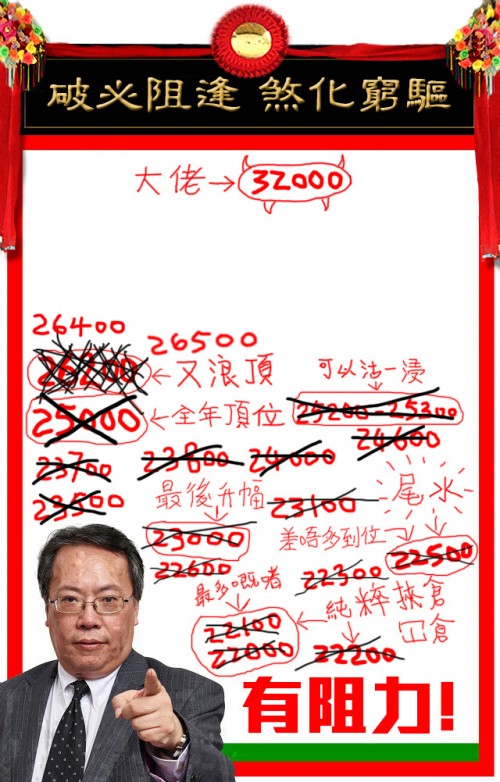 驅窮化煞 逢阻必破
大佬→32000
26400
26500
←又浪頂
可以沽一浸
25000←全年頂位
25200-25300
24600
23700
23800
24000
23500
最後升幅
23100
尾水
23000
差唔多到位
22500
22600
22300
最多嘅啫
純粹挾倉
冚倉
22100
22000
22200
有阻力!